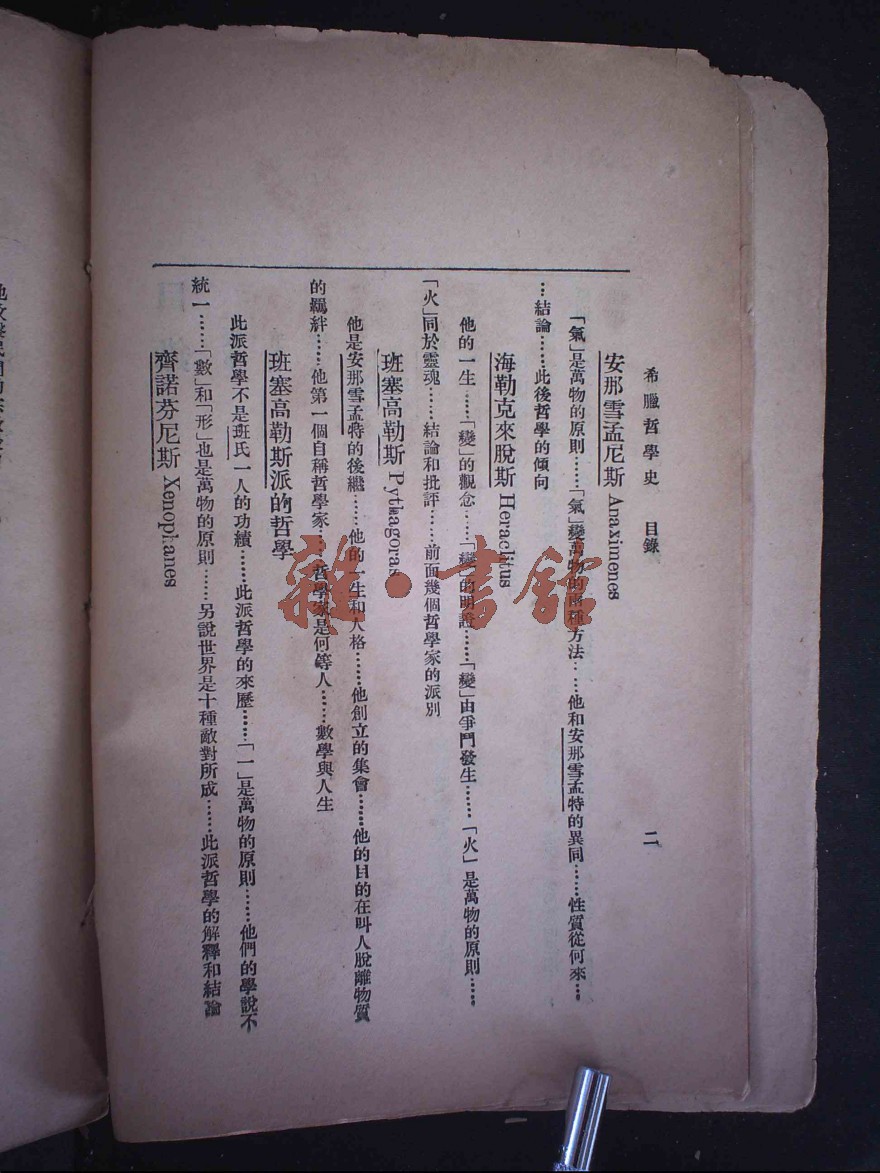 希臘哲學史 目錄 二
安那雪孟尼斯 Anaximenes
「氣」是萬物的原則……「氣」變萬物的兩種方法……他和安那雪孟特的異同……性質從何來……
…結論……此後哲學的傾向
海勒克來脫斯 Heraclitus
他的一生……「變」的觀念……「變」的明證……「變」由爭鬥發生……「火」是萬物的原則……
「火」同於靈魂……結論和批評……前面幾個哲學家的派別
班塞高勒斯 Pythagoras
他是安那雪孟特的後繼……他的一生和人格……他創立的集會……他的目的在叫人脫離物質
的羈絆……他第一個自稱哲學家……哲學家是何等人……數學與人生
班塞高勒斯派的哲學
此派哲學不是班氏一人的功績……此派哲學的來歷……「一」是萬物的原則……他們的學說不
統一……「數」和「形」也是萬物的原則……另說世界是十種敵對所成……此派哲學的解釋和結論
齊諾芬尼斯 Xenophanes
雜·書館